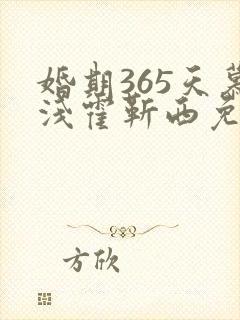 婚期365天慕
浅霍靳西免
方欣